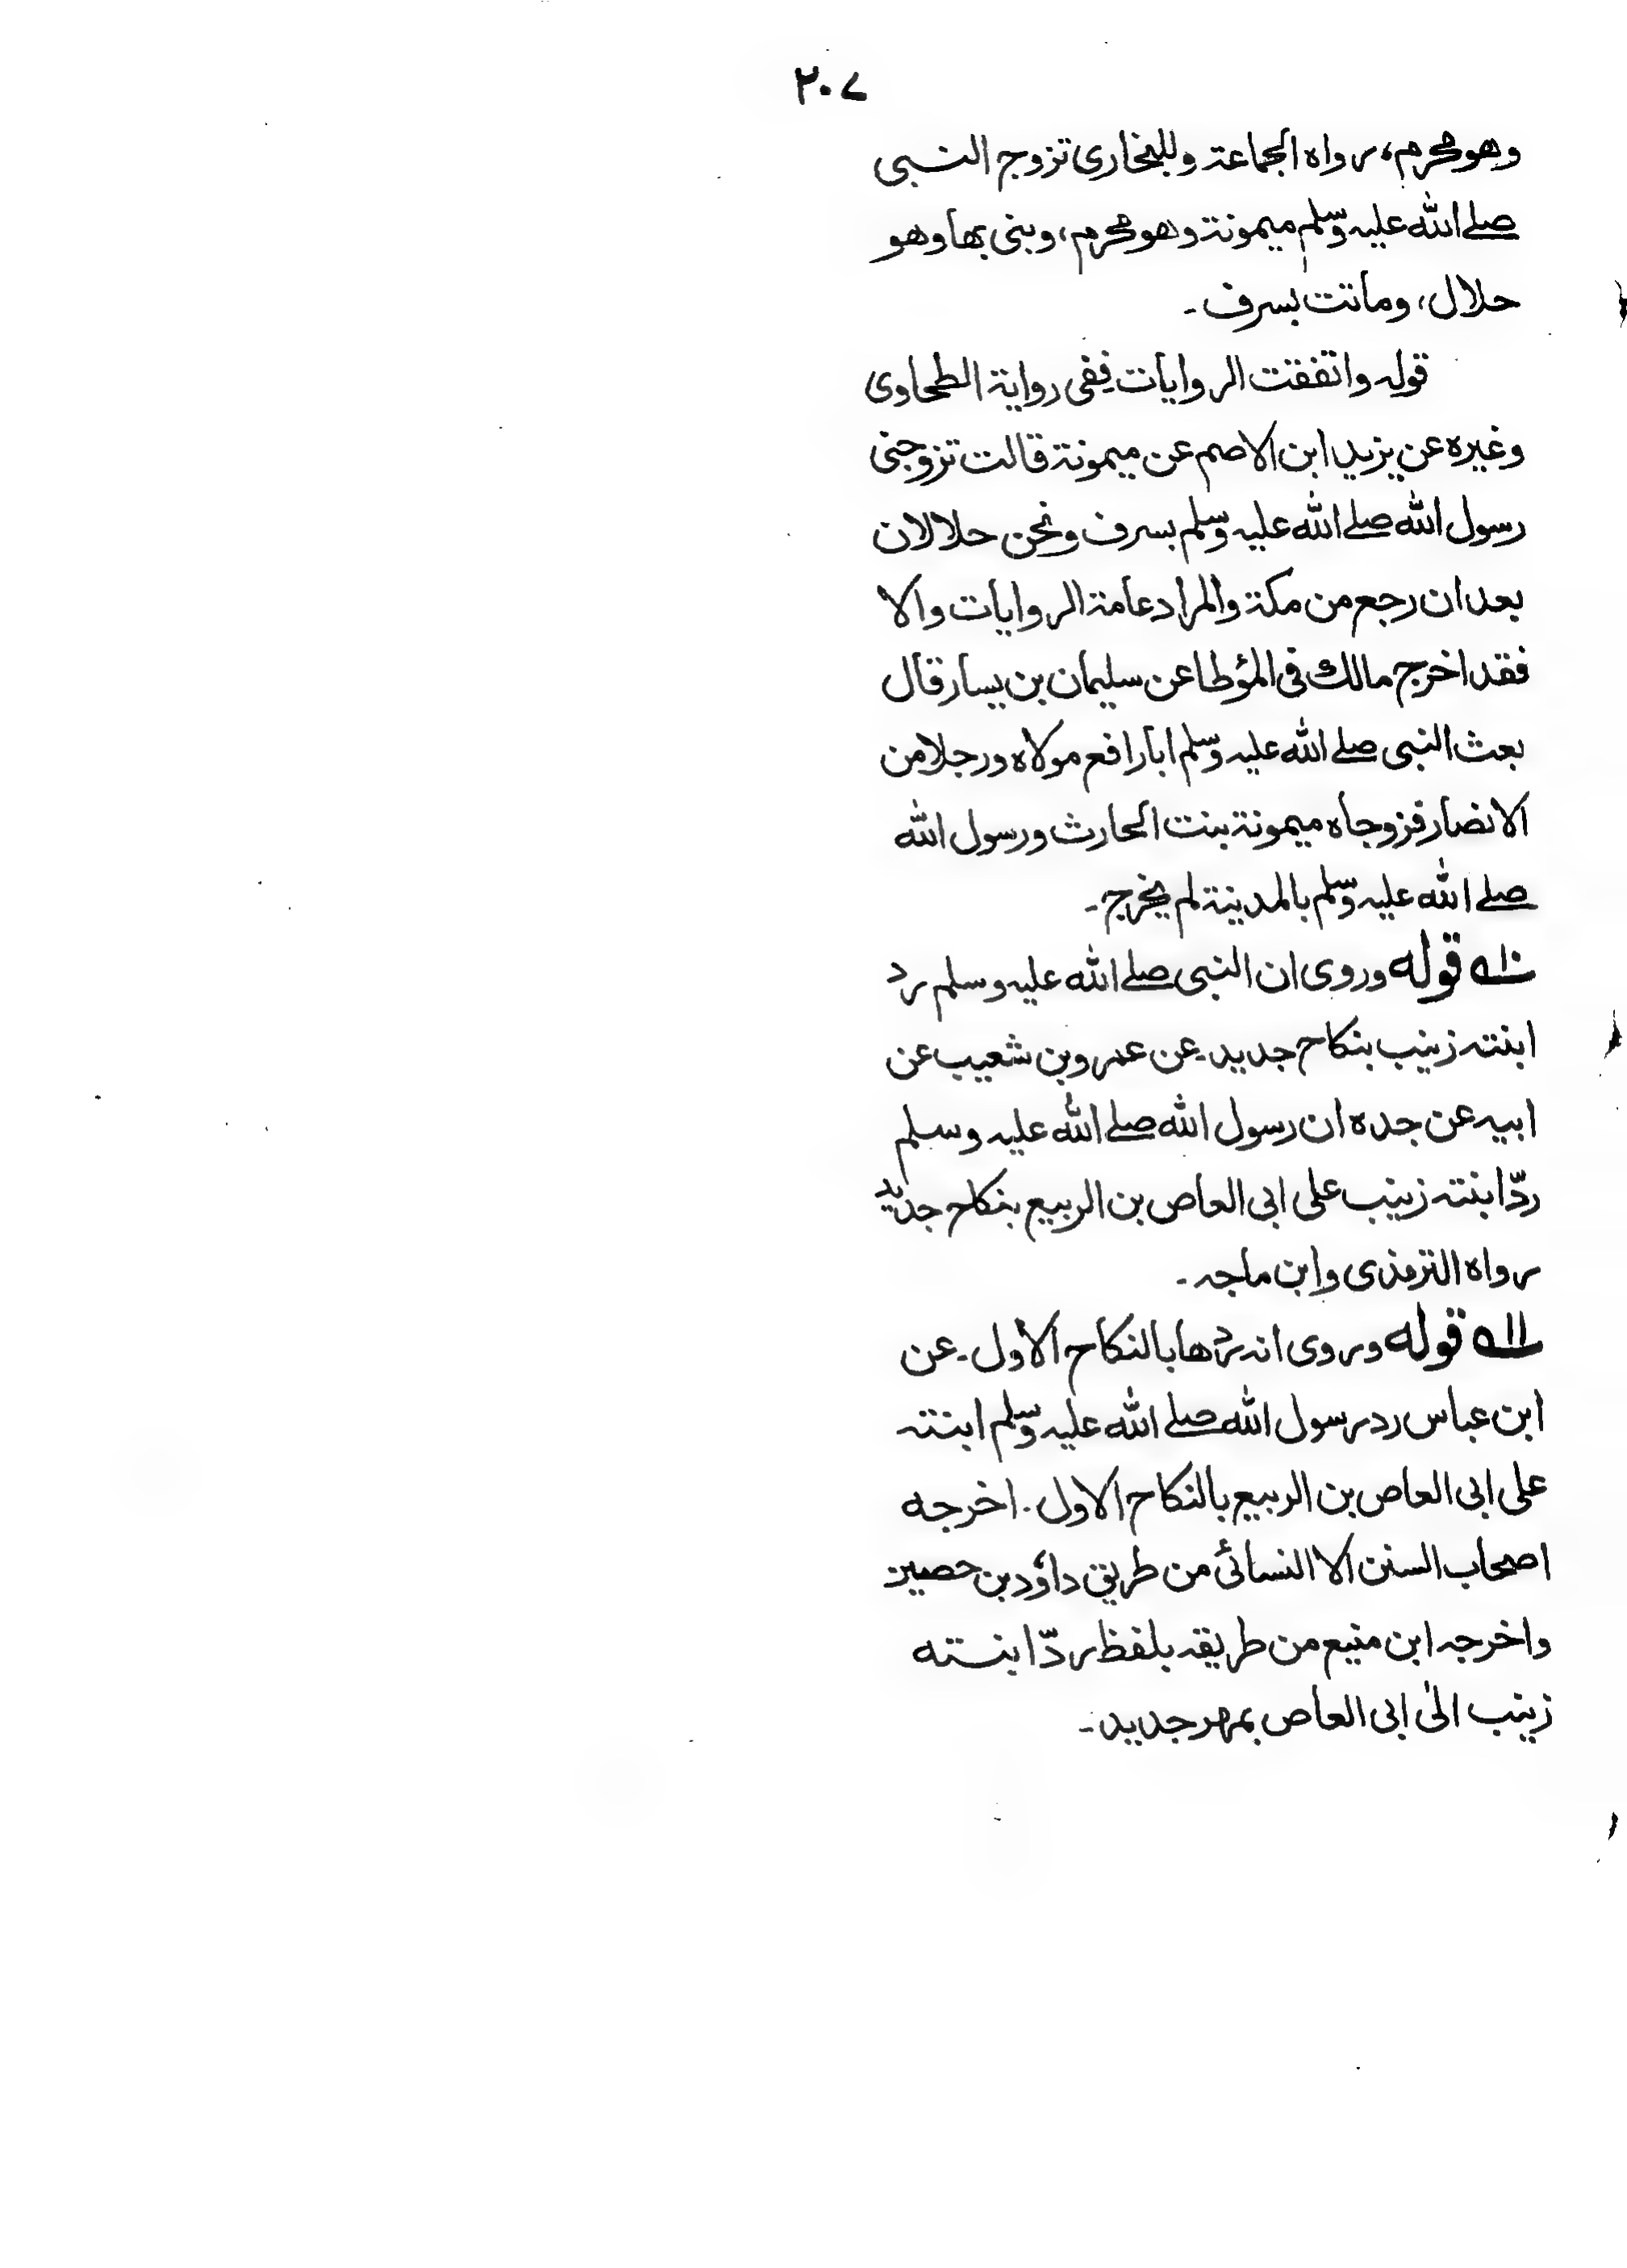 ٢٠٧
وهو محرم، رواه الجماعة وللبخاری تزوج النبی
صلے الله علیہ وسلم میمونة وهو محرم، وبنی بها وهو
حلال، وماتت بسرف۔
قولہ واتفقت الروایات ففی روایة الطحاوی
وغیره عن یزید ابن الاصم عن میمونة قالت تزوجنی
رسول الله صلے الله علیہ وسلم بسرف ونحن حلالان
بعد ان رجع من مکة والمراد عامة الروایات والا
فقد اخرج مالك فی المؤطا عن سلیمان بن یسار قال
بعث النبی صلے الله علیہ وسلم ابا رافع مولاه ورجلا من
الانصار فزوجاه میمونة بنت الحارث ورسول الله
صلے الله علیہ وسلم بالمدینة لم یخرج۔
١٠ـه قوله وروی ان النبی صلے الله علیہ وسلم رد
ابنتہ زینب بنکاح جدید۔ عن عمرو بن شعیب عن
ابیہ عن جده ان رسول الله صلے الله علیہ وسلم
ردّ ابنتہ زینب علی ابی العاص بن الربیع بنکاح جدید
رواه الترمذی وابن ماجہ۔
١١ـه قوله وروی انہ ردها بالنکاح الاول۔ عن
ابن عباس رد رسول الله صلے الله علیہ وسلم ابنتہ
علی ابی العاص بن الربیع بالنکاح الاول۔ اخرجه
اصحاب السنن الا النسائی من طریق داؤد بن حصین
واخرجہ ابن منیع من طریقہ بلفظ ردّ ابنته
زینب الیٰ ابی العاص بمهر جدید۔